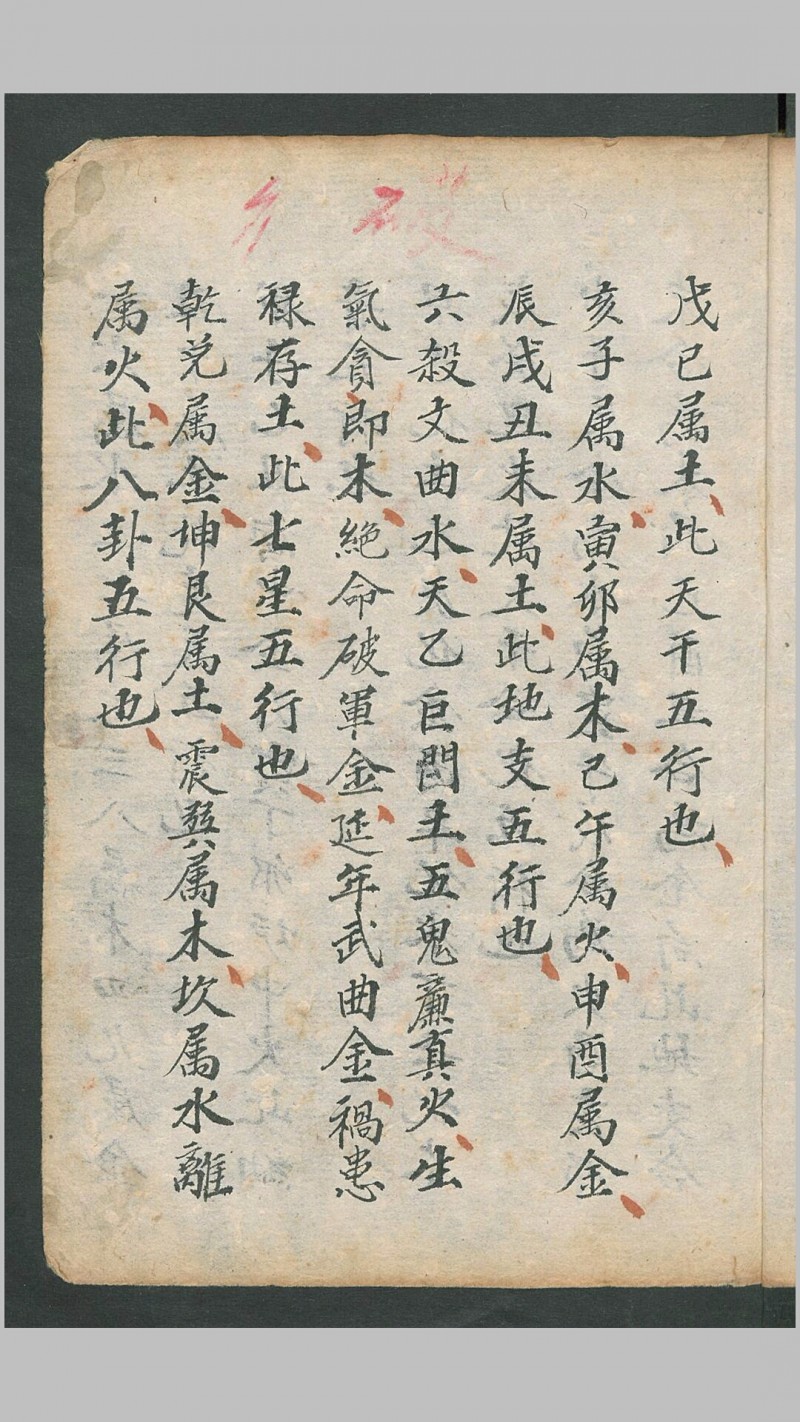 戊已属土此天干五行也
亥子属水寅卯属木己午属火申酉属金
辰戌丑未属土此地支五行也
六殺文曲水天乙巨門土五鬼廉真火生
氣貪即木絕命破軍金延年武曲金禍患
禄存土此七星五行也
乾兑属金坤艮属土震巽属木坎属水離
属火此八卦五行也